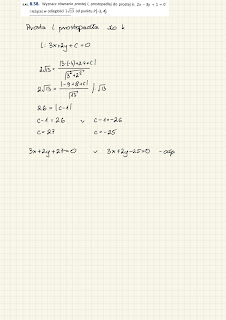 8.58. Wyznacz równanie prostej l, prostopadłej do prostej k: 2x − 3y + 1 = 0
i leżącej w odległości 2√13 od punktu P(-3, 4).
Prosta l prostopadła do k
l: 3x+2y+c=0
2√13 = |3·(-3)+2·4+c| / √(3²+2²)
2√13 = |-9+8+c| / √13 /·√13
26 = |c-1|
c-1=26 v c-1=-26
c=27 c=-25
3x+2y+27=0 v 3x+2y-25=0 -odp